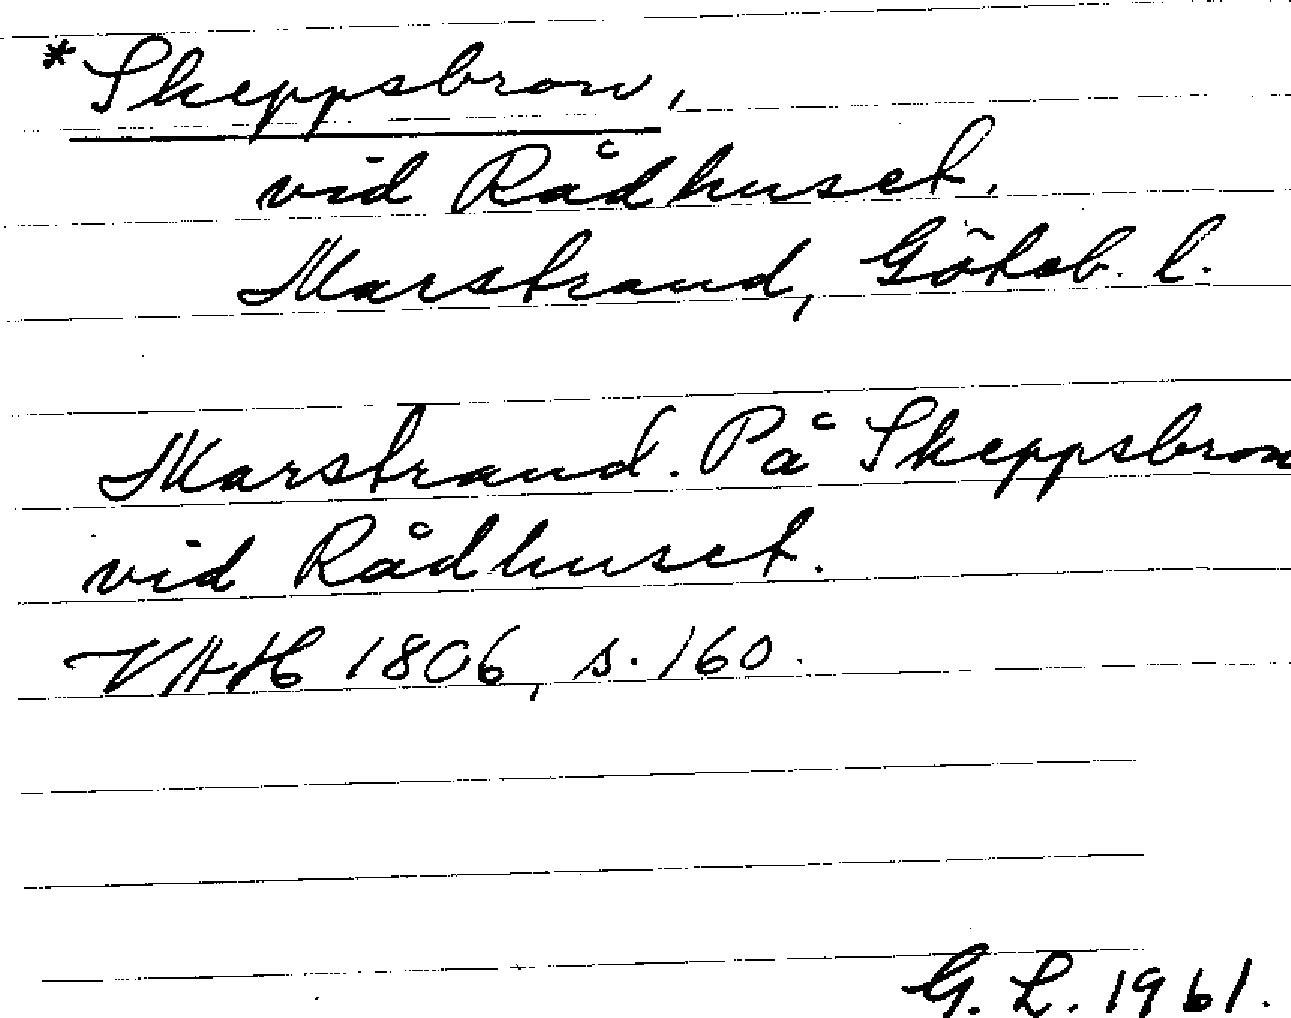 * Skeppsbron,
vid Rådhuset.
Marstrand, Göteb. l.
Marstrand. På Skeppsbron
vid Rådhuset.
VAH 1806, s. 160.
G. L. 1961.